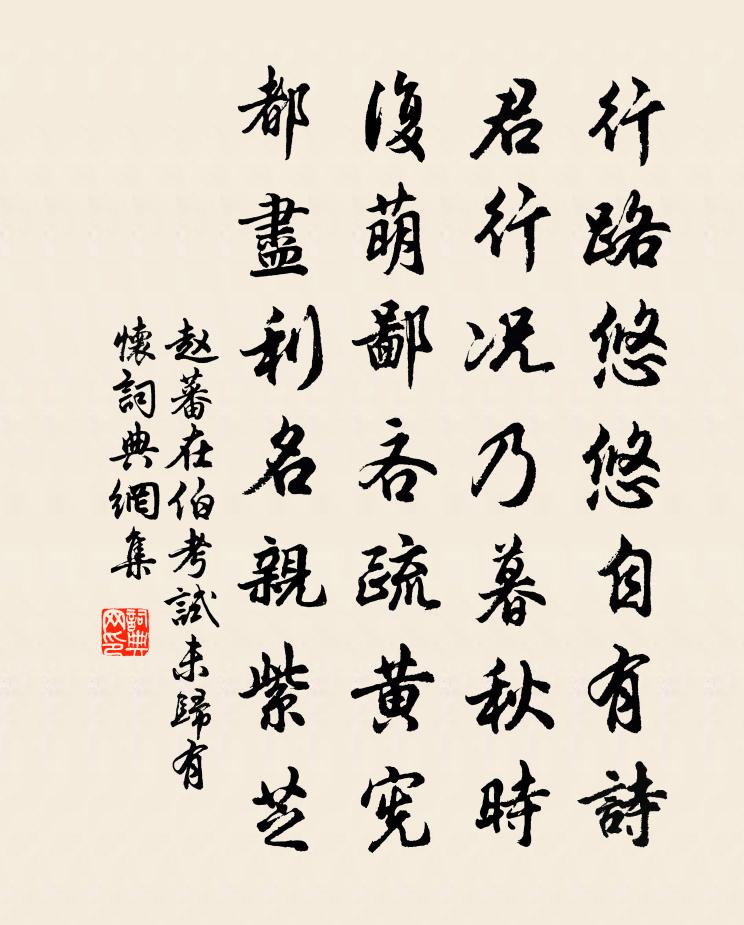 行路悠悠自有詩
君行况乃暮秋時
復萌鄙吝疏黄憲
都盡利名親紫芝
赵蕃在伯考試未歸有
懷詞典網集
詞典网印